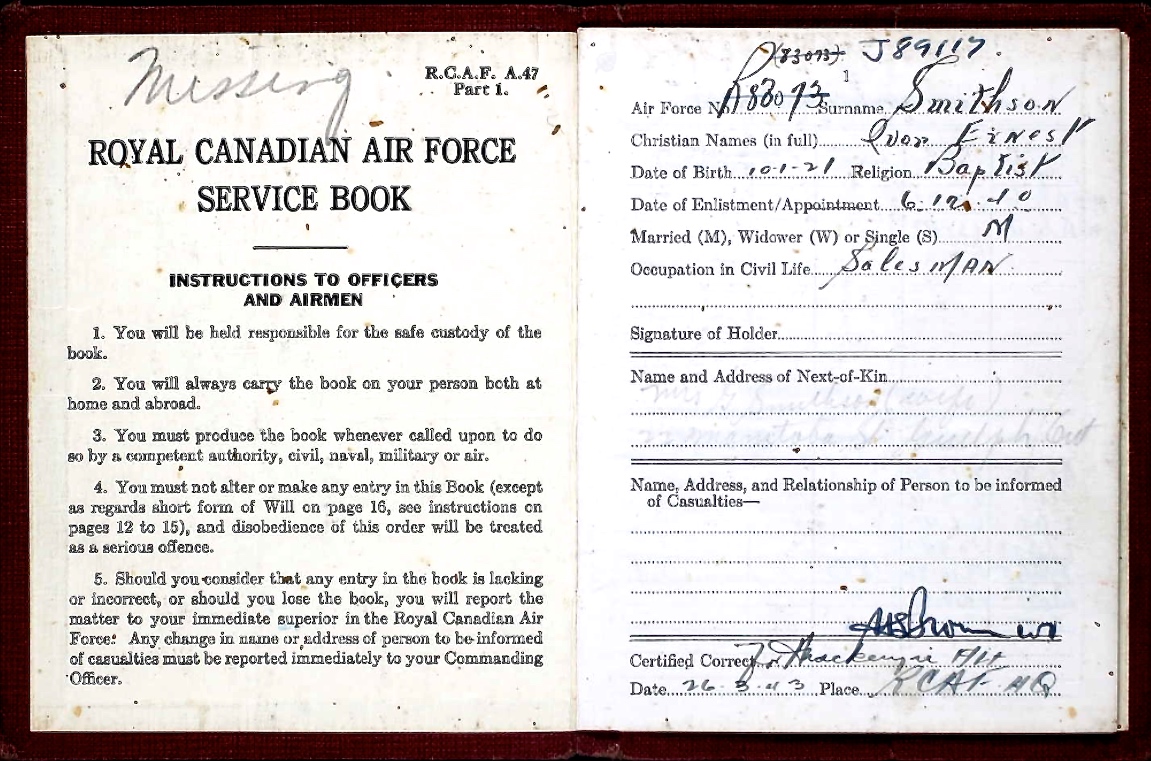 Missing
R.C.A.F. A.47
Part 1.
ROYAL CANADIAN AIR FORCE
SERVICE BOOK
INSTRUCTIONS TO OFFICERS
AND AIRMEN
1. You will be held responsible for the safe custody of the
book.
2. You will always carry the book on your person both at
home and abroad.
3. You must produce the book whenever called upon to do
so by a competent authority, civil, naval, military or air.
4. You must not alter or make any entry in this Book (except
as regards short form of Will on page 16, see instructions on
pages 12 to 15), and disobedience of this order will be treated
as a serious offence.
5. Should you consider that any entry in the book is lacking
or incorrect, or should you lose the book, you will report the
matter to your immediate superior in the Royal Canadian Air
Force. Any change in name or address of person to be informed
of casualties must be reported immediately to your Commanding
Officer.
(83093) J89117
1
Air Force No. R83093 Surname Smithson
Christian Names (in full) Ernest
Date of Birth 10-1-21 Religion Baptist
Date of Enlistment/Appointment 6 12 40
Married (M), Widower (W) or Single (S) M
Occupation in Civil Life Salesman
Signature of Holder
Name and Address of Next-of-Kin
Mrs Smithson (wife)
Manitoba St Guelph Ont
Name, Address, and Relationship of Person to be informed
of Casualties—
Certified Correct Mackenzie F/Lt
Date 26 3 43 Place RCAF HQ